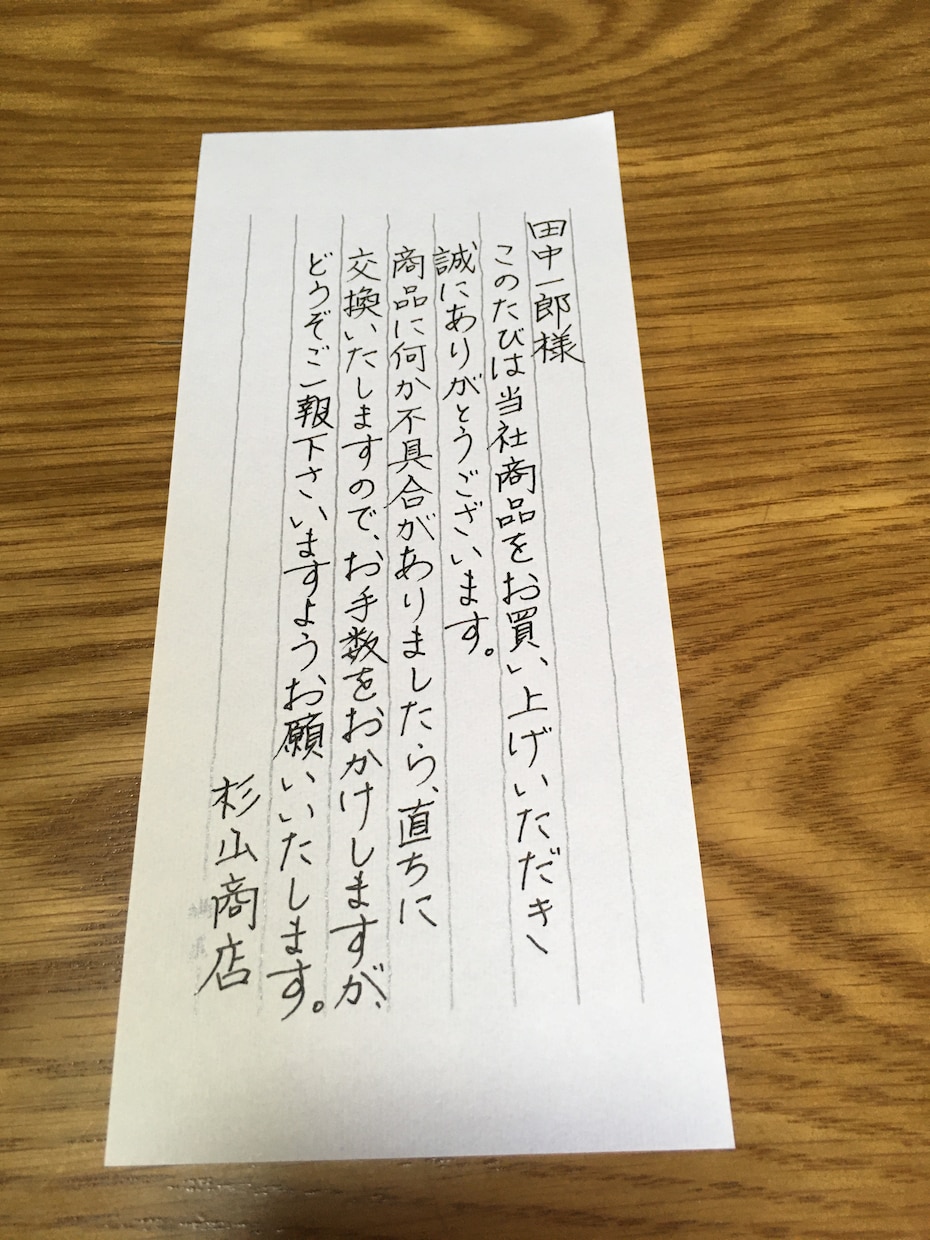 田中一郎様
このたびは当社商品をお買い上げいただき、
誠にありがとうございます。
商品に何か不具合がありましたら、直ちに
交換いたしますので、お手数をおかけしますが、
どうぞご一報下さいますようお願いいたします。
杉山商店